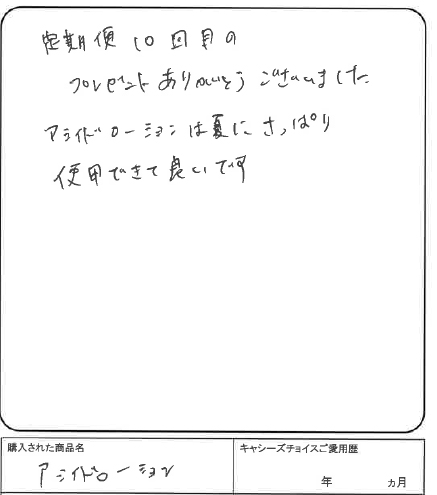 定期便10回目の
プレゼントありがとうございました
アシドローションは夏にさっぱり
使用できて良いです
購入された商品名
アシドローション
キャシーズチョイスご愛用歴
年 ヵ月